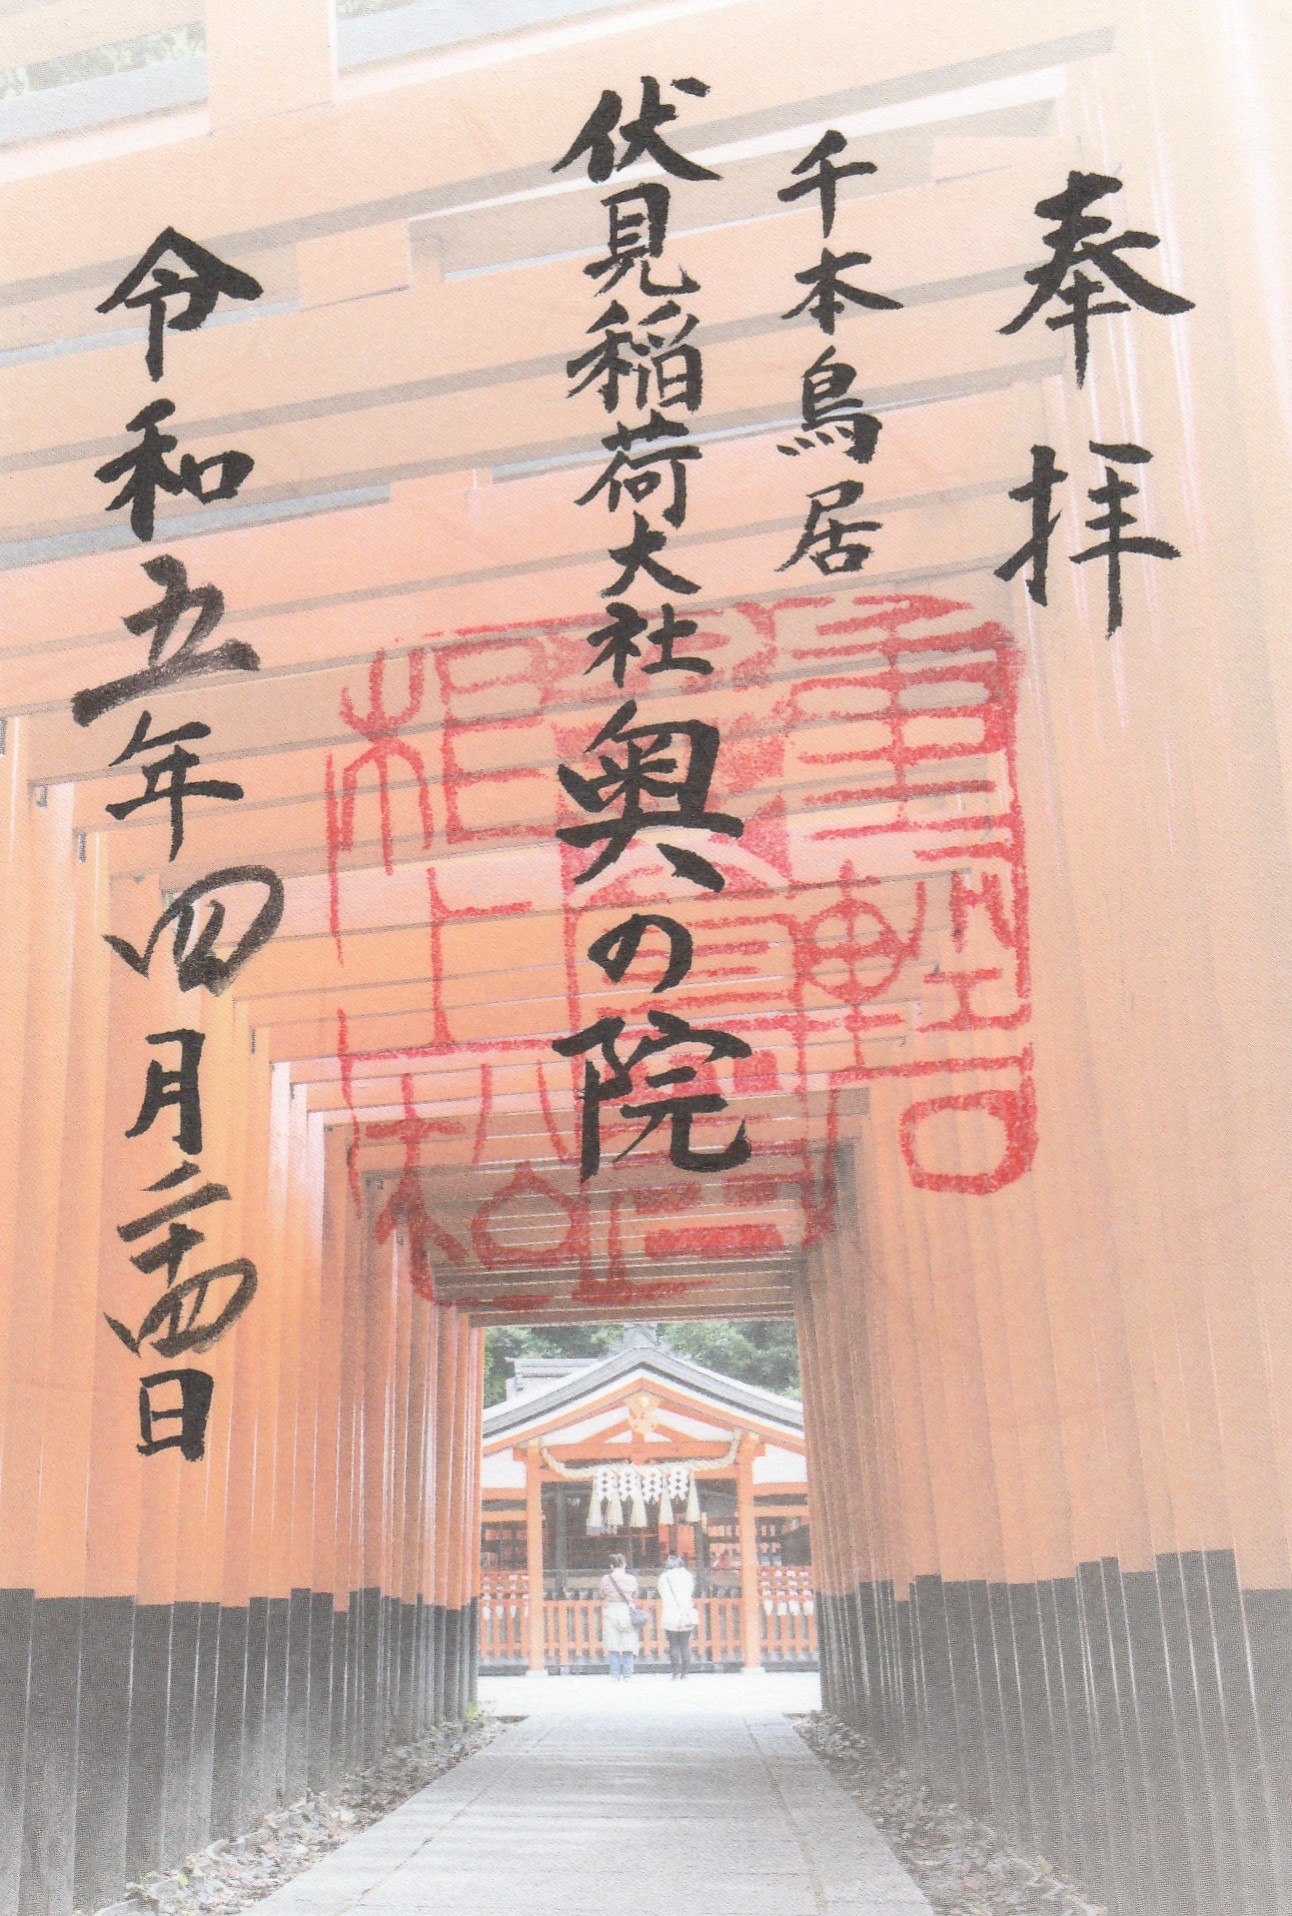 奉拝
千本鳥居
伏見稲荷大社奥の院
令和五年四月二十四日